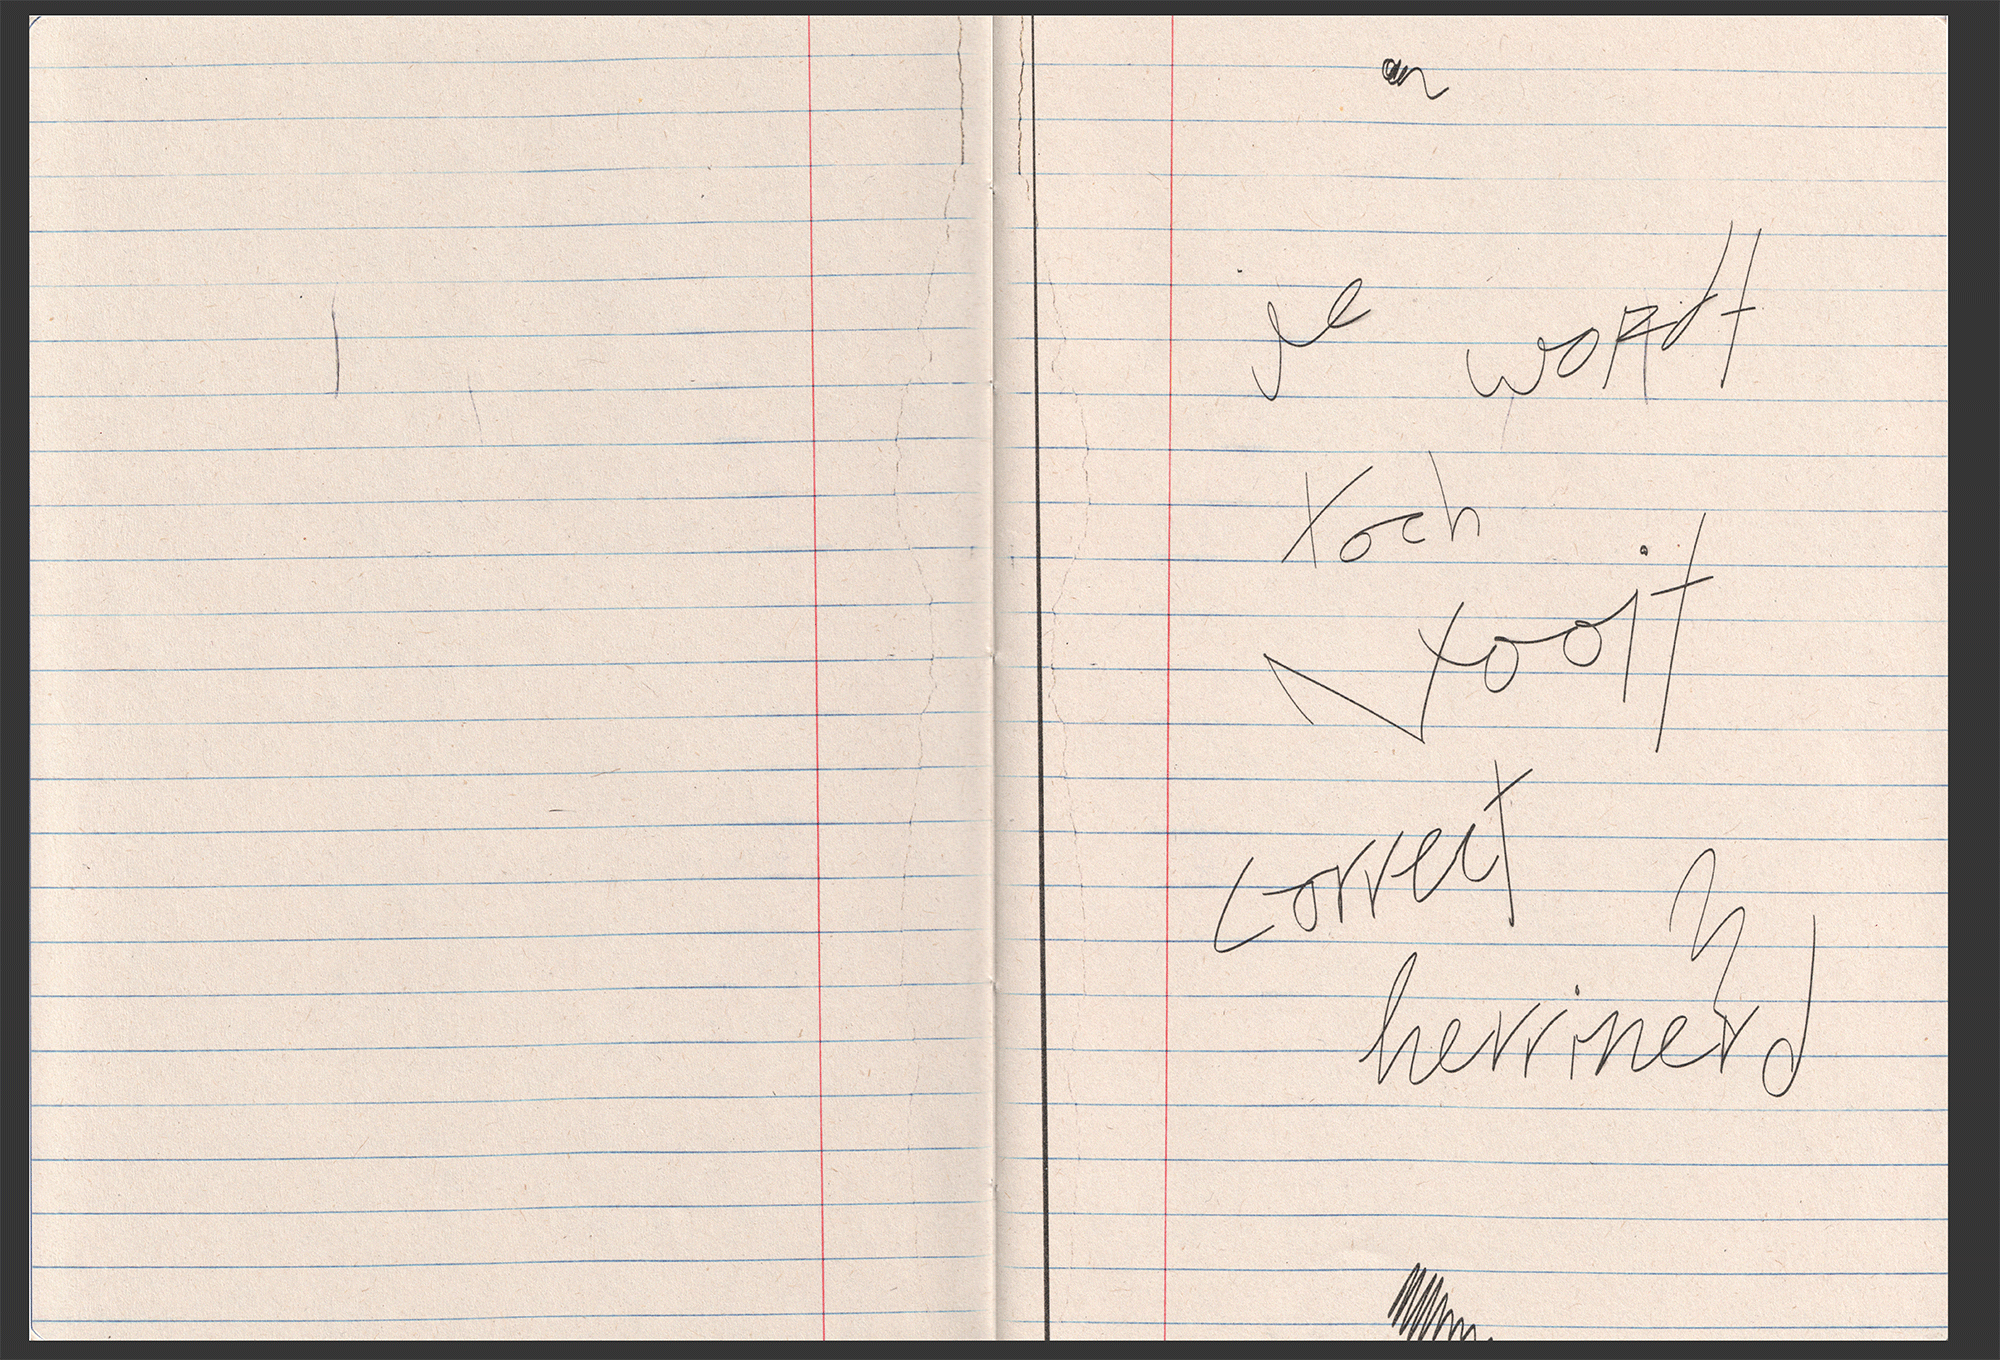 je wordt
toch
nooit
correct
herinnerd